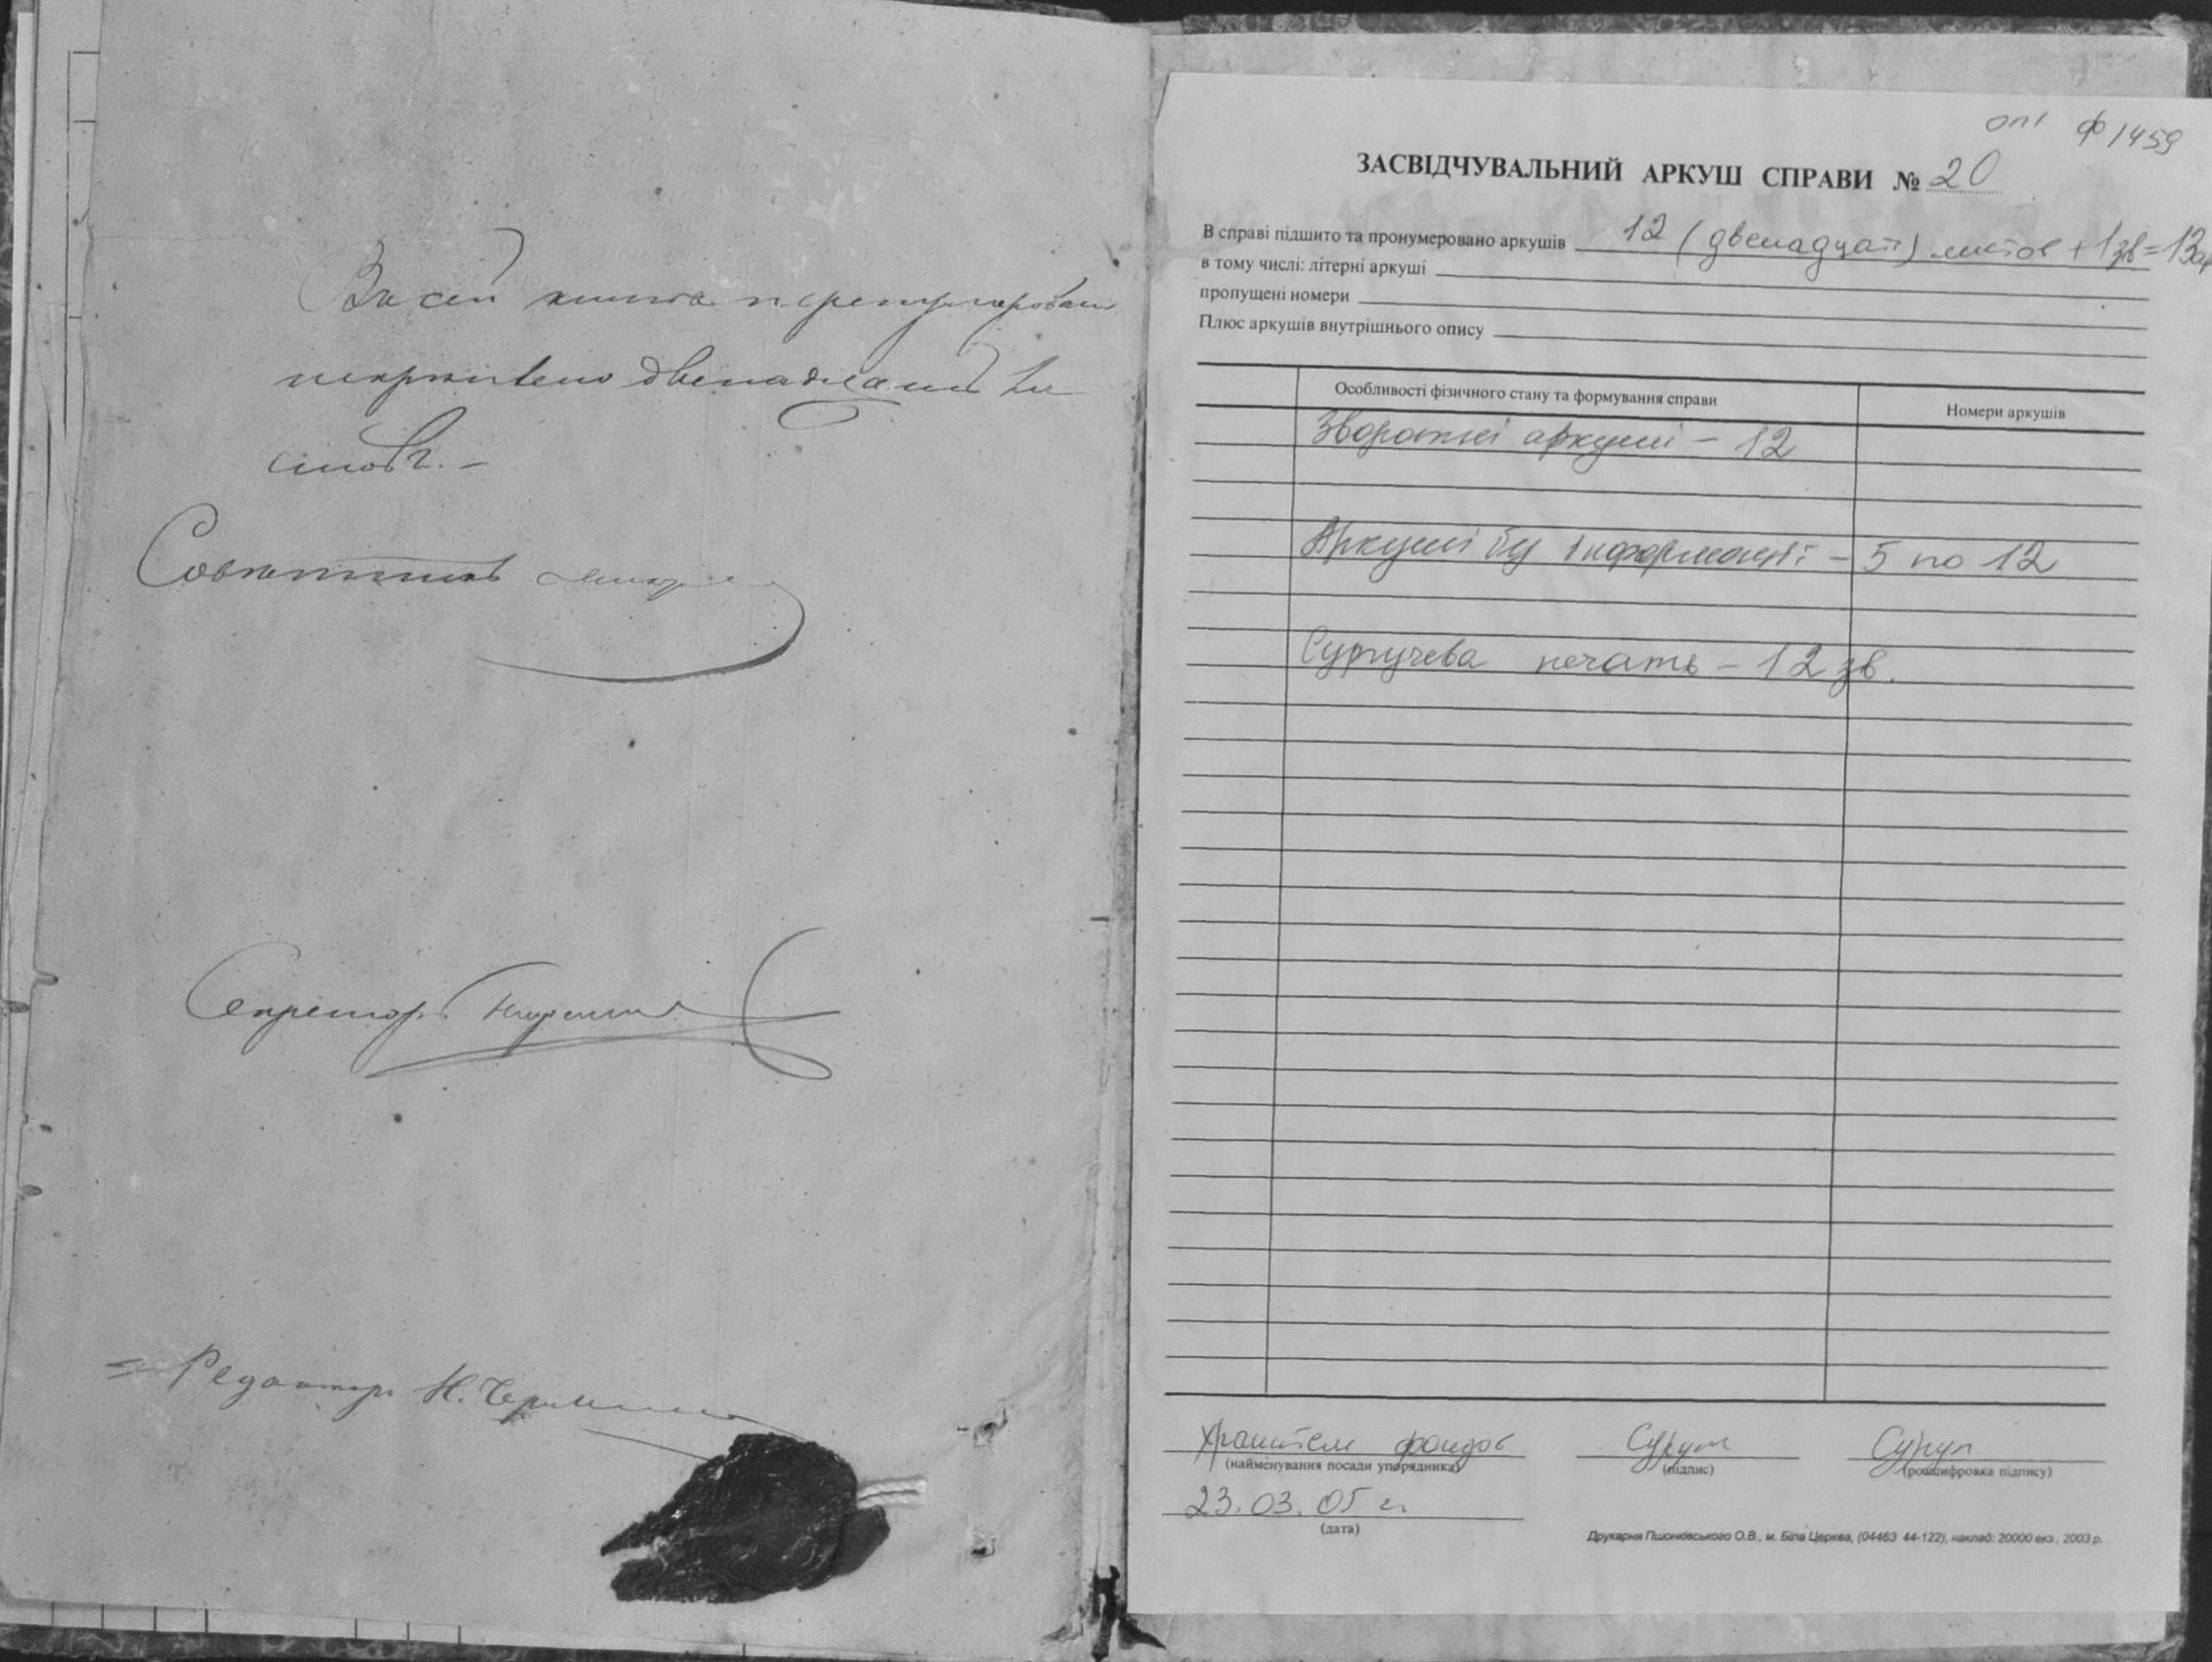 В сей книге перенумеровано
и скреплено двенадцать ли
стовъ. —
Советникъ
Секретарь
= Редакторъ Н.
оп 1 ф 1459
ЗАСВІДЧУВАЛЬНИЙ АРКУШ СПРАВИ № 20
В справі підшито та пронумеровано аркушів 12 (двенадцат) листов + 1зв = 13ар
в тому числі: літерні аркуші
пропущені номери
Плюс аркушів внутрішнього опису
Особливості фізичного стану та формування справи
Номери аркушів
Зворотні аркуші – 12
Аркуші без інформації – 5 по 12
Сургучева печать – 12 зв.
Хранитель фондов
(найменування посади упорядника)
(підпис)
(розшифровка підпису)
23.03.05 г.
(дата)
Друкарня Пшонківського О.В., м. Біла Церква, (04463 44-122), наклад: 20000 екз., 2003 р.